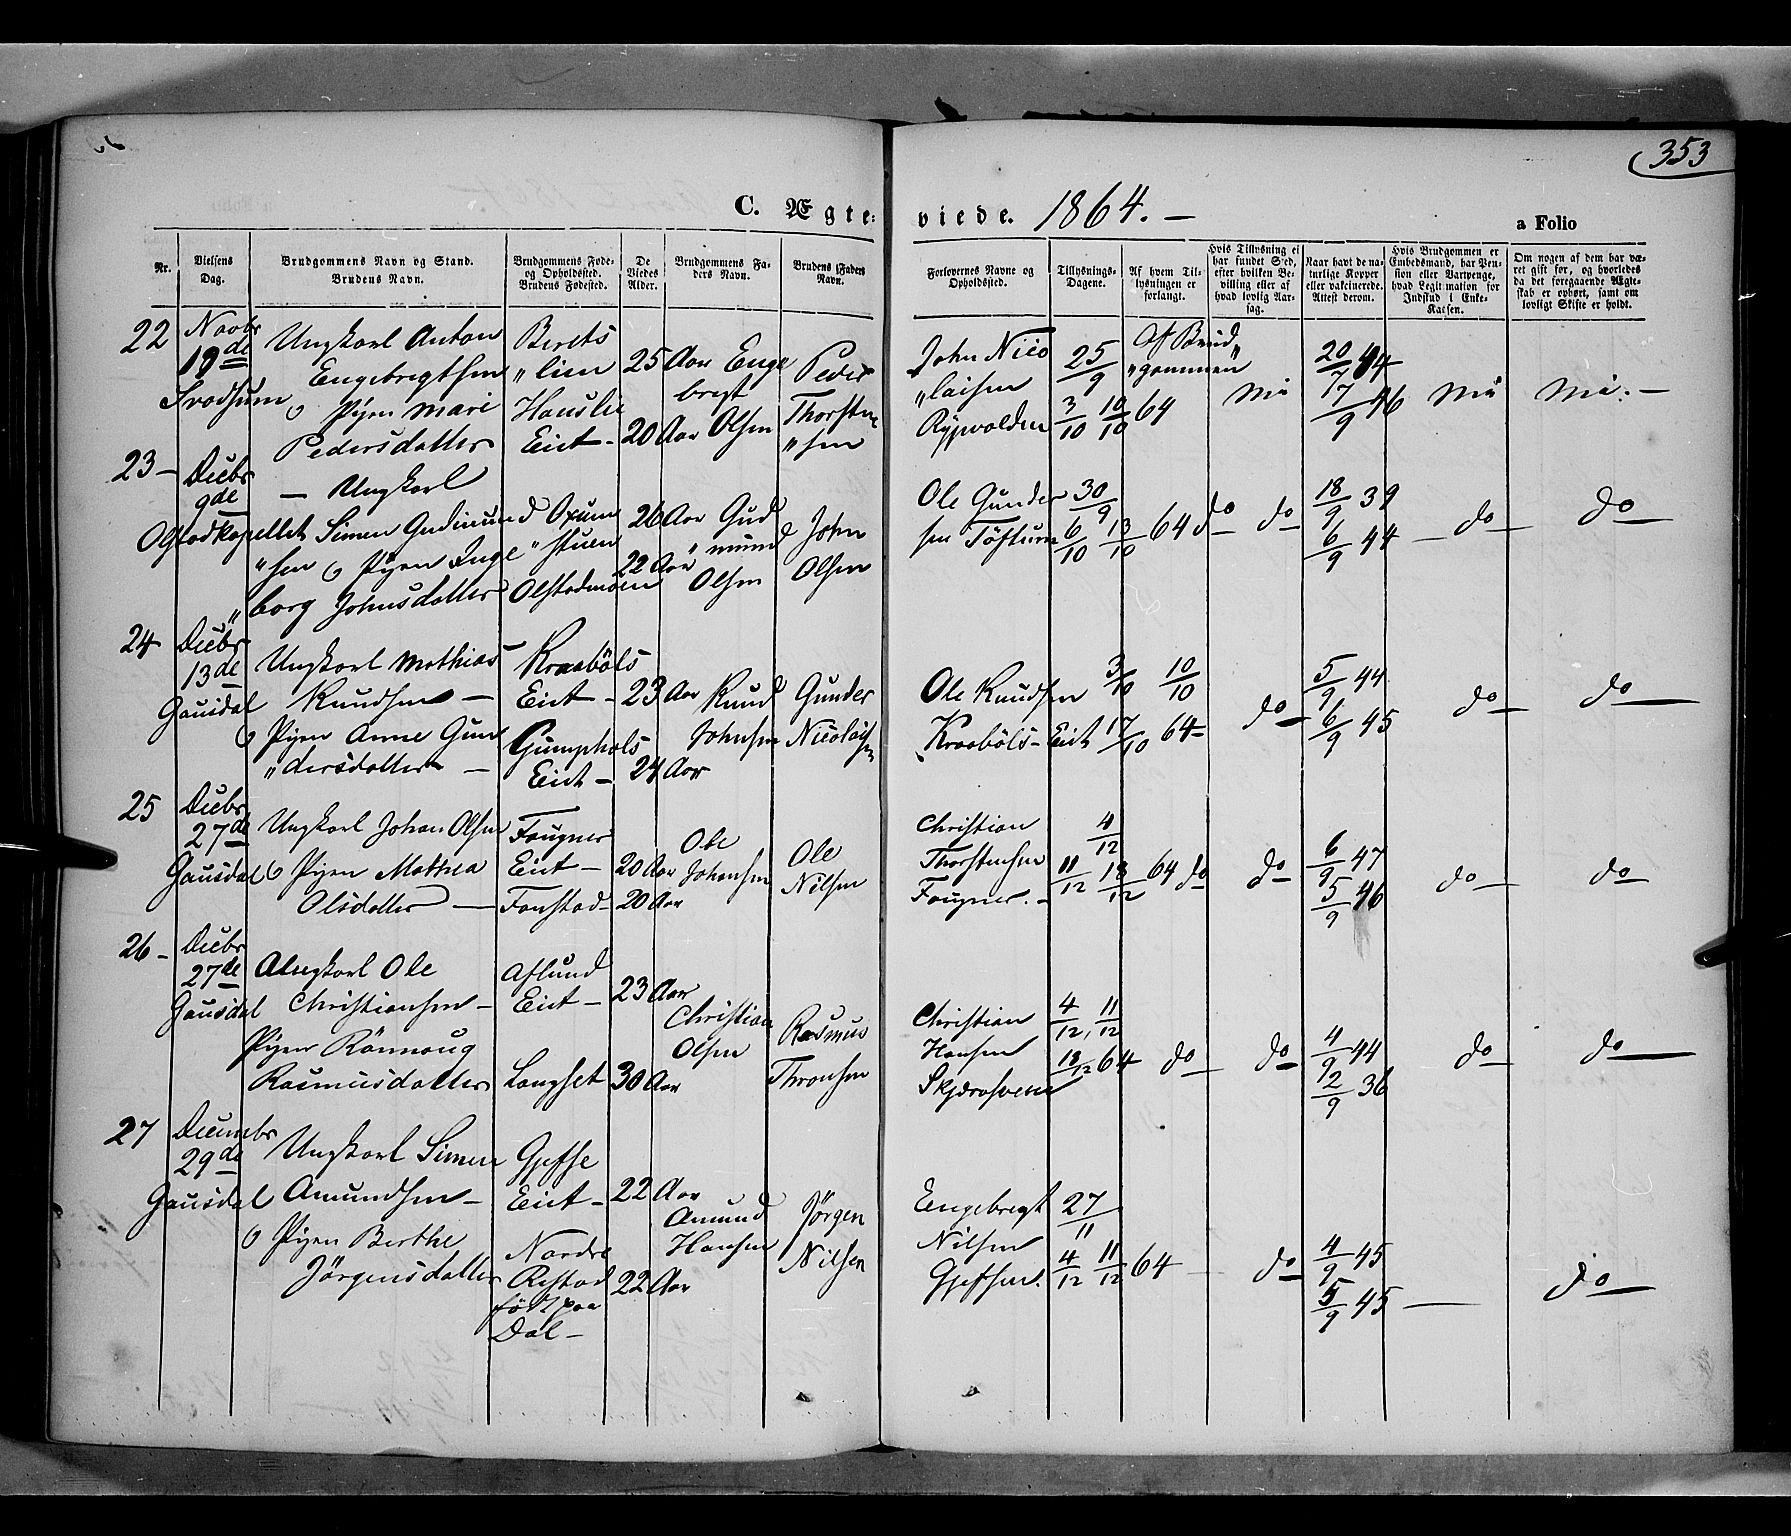 353
C. Ægte- viede. 1864. —
a Folio
Nr.
Vielsens Dag.
Brudgommens Navn og Stand. Brudens Navn.
Brudgommens Føde- og Opholdssted. Brudens Fødested.
De Viedes Alder.
Brudgommens Faders Navn.
Brudens Faders Navn.
Forlovernes Navne og Opholdssted.
Tillysnings-Dagene.
Af hvem Tillysningen er forlangt.
Hvis Tillysning ei har fundet Sted, efter hvilken Bevilling eller af hvad lovlig Aarsag.
Naar havt de naturlige Kopper eller vakcinerede. Attest derom.
Hvis Brudgommen er Embedsmand, har Pension eller Vartpenge, hvad Legitimation for Indskud i Enke-Kassen.
Om nogen af dem har været gift før, og hvorledes da det foregaaende Ægteskab er ophørt, samt om lovligt Skifte er holdt.
22 Novbr Ungkarl Anton Berets John Nico Af Brud„
19de Engebregtsen „lien 25 Aar Enge Peder „laisen 25/9 „gommen 20/7 44
Svadsum o Pigen Mari Hauslie bregt Thorsten 3/10 10/10 64 17/9 46
Pedersdatter Eiet — 20 Aar Olsen „sen
23 — Decbr
9de — Ungkarl Ole Gunder 30/9 18/9 39
Olstadkapellet Simen Gudmund Oxum 26 Aar Gud John sen Töftum 6/10 13/10 64 do do 6/9 44 — do — do
„sen o Pigen Inge „stuen 22 Aar „mund
„borg Johnsdatter Olstadmoen Olsen Olsen
24 Decbr
13de Ungkarl Mathias Kraabøls 3/10 10/10 5/9 44
Gausdal Knudsen — Eiet — 23 Aar Knud Gunder Ole Knudsen do do do
o Pigen Anne Gun Gumphols Johnsen Nicolaisen Kraabøls-Eiet 17/10 64 6/9 45
„dersdatter — Eiet — 24 Aar
25 Decbr
27de Ungkarl Johan Olsen Fougner Christian 4/12
Gausdal o Pigen Mathea Eiet — 20 Aar Ole Johansen Ole Nilsen Thorstensen 11/12 18/12 64 do do 6/9 47 do do
Olsdatter — Fonstad — 20 Aar Fougner. — 5/9 46
26 — Decbr
27de Ungkarl Ole Aslund
Gausdal Christiansen — Eiet — 23 Aar Christian 4/12, 11/12
Pigen Rönnoug Christian Olsen Rasmus Hansen 18/12 64 do do 4/9 44 do do
Rasmusdatter Longset 30 Aar Thronsen 12/9 36
27 Decembr
29de Ungkarl Simen Gjefse
Gausdal Amundsen — Eiet — 22 Aar Amund Jørgen Engebregt 27/11
o Pigen Berthe Nordre Hansen Nilsen Nilsen
Jørgensdatter 22 Aar Gjefsen. 4/12 11/12 64 do 4/9 45 — do
født paa 5/9 45
Dal —